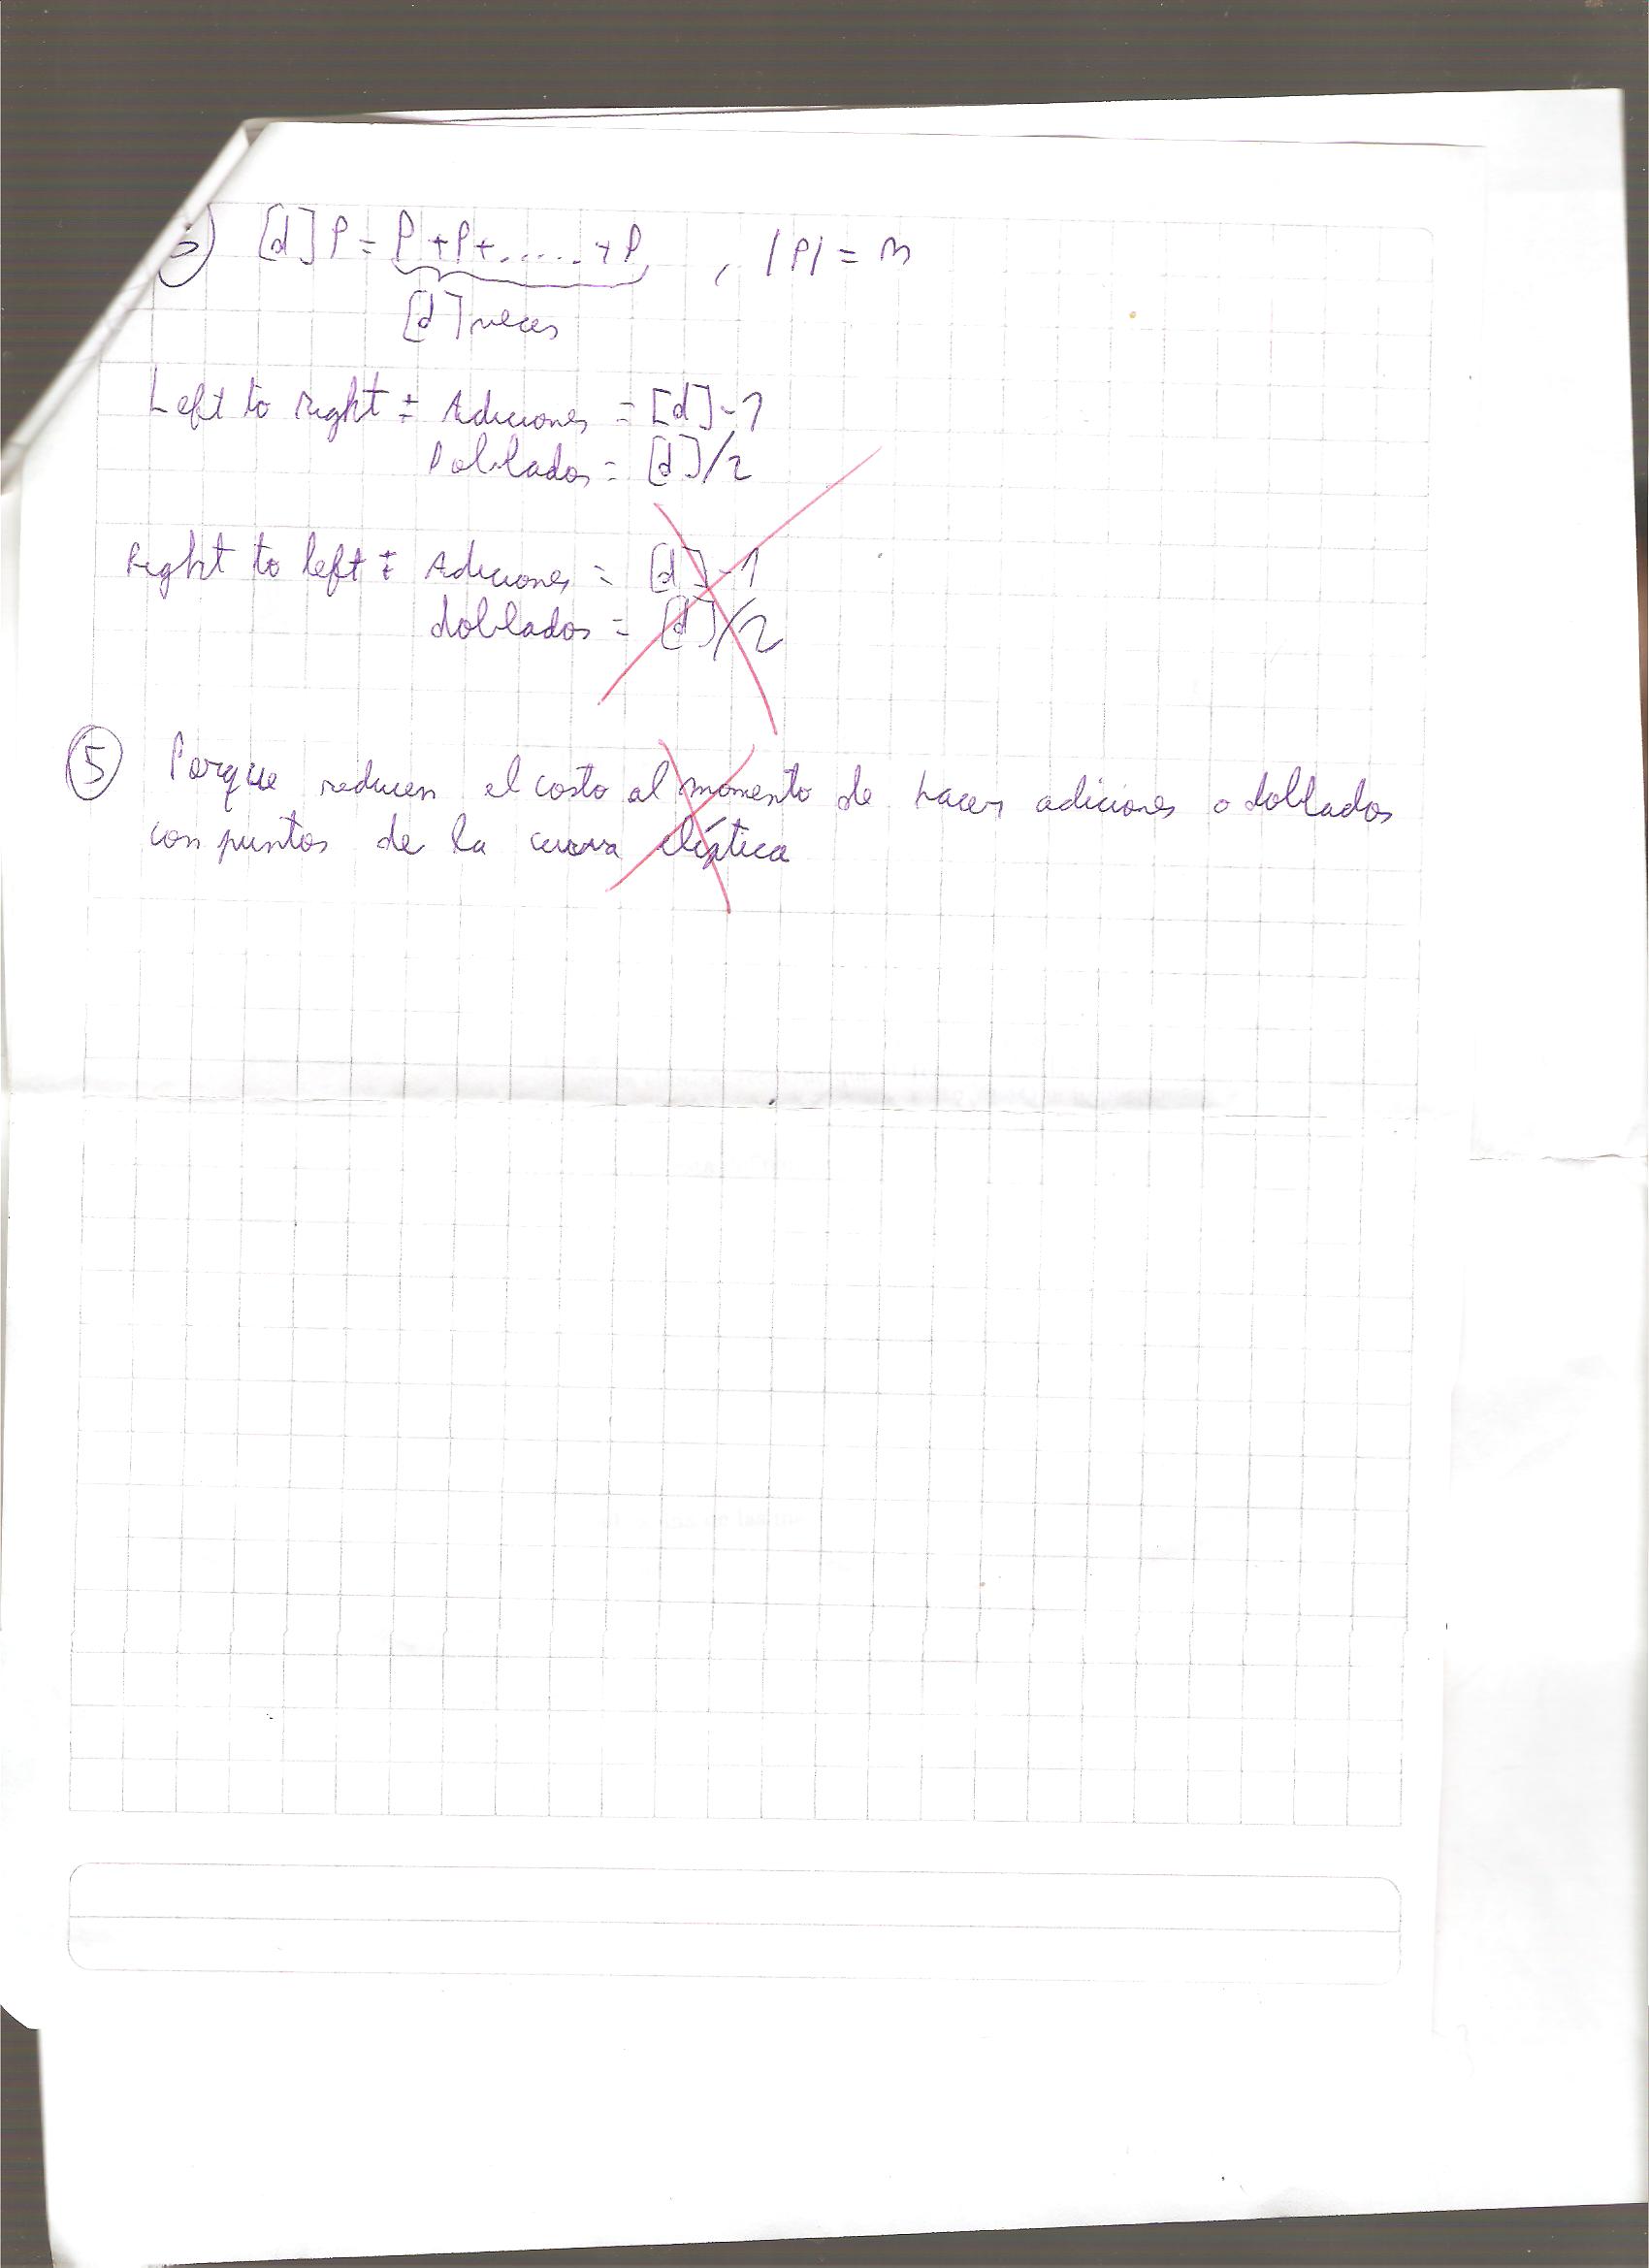 3) [d]P = P+P+......+P , |P| = n
[d] veces
Left to right : Adiciones = [d]-1
Doblados = [d]/2
Right to left : Adiciones = [d]-1
doblados = [d]/2
5 Porque reducen el costo al momento de hacer adiciones o doblados
con puntos de la curva elíptica